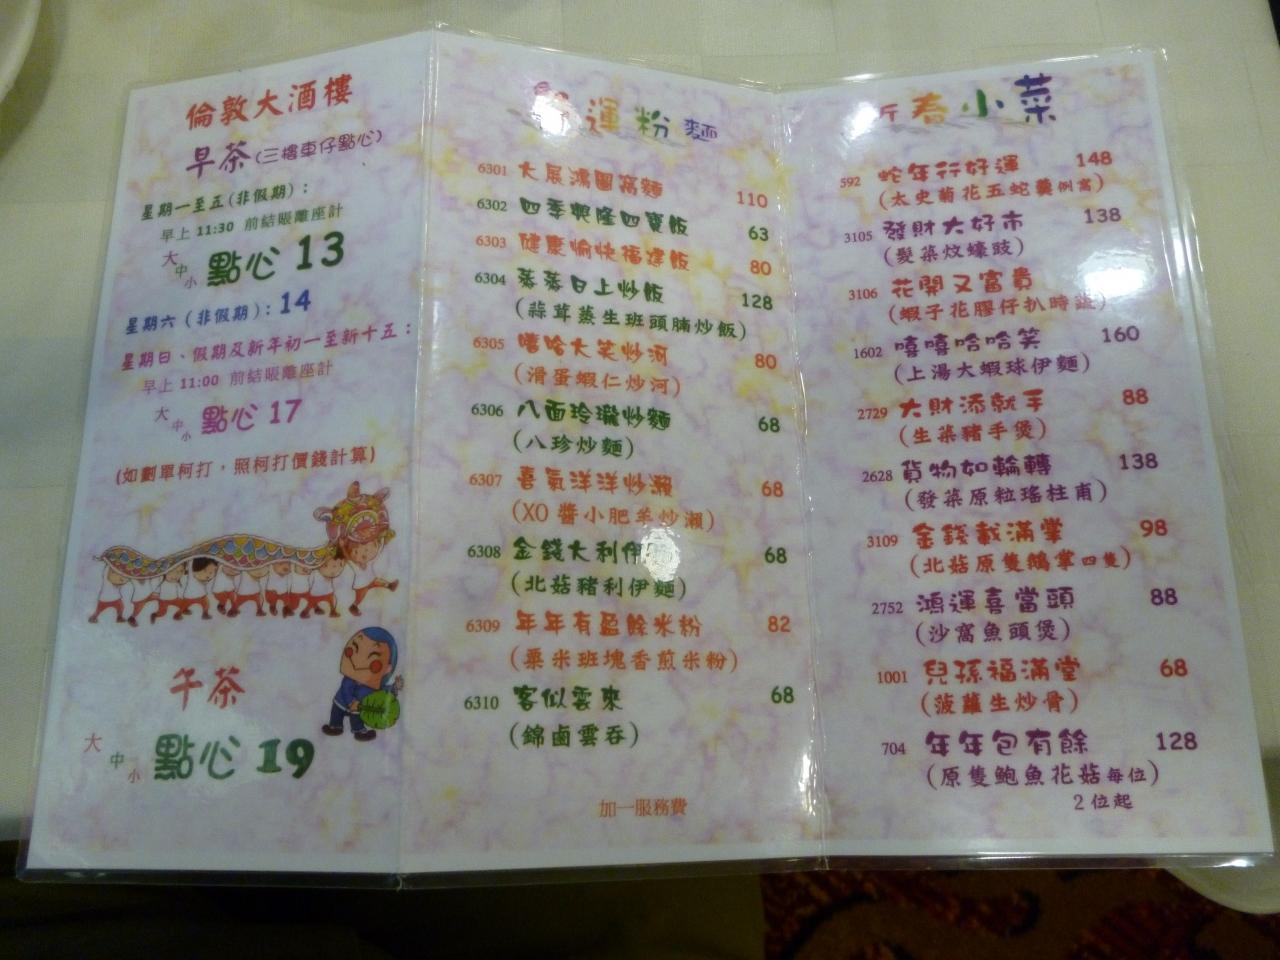 倫敦大酒樓
早茶(三樓車仔點心)
星期一至五(非假期)：
早上 11:30 前結賬離座計
大中小 點心 13
星期六(非假期)：14
星期日、假期及新年初一至新十五：
早上 11:00 前結賬離座計
大中小 點心 17
(如劃單柯打，照柯打價錢計算)
午茶
大中小 點心 19
運粉麵
6301 大展鴻圖窩麵 110
6302 四季興隆四寶飯 63
6303 健康愉快福建飯 80
6304 蒸蒸日上炒飯 128
(蒜茸蒸生班頭腩炒飯)
6305 嘻哈大笑炒河 80
(滑蛋蝦仁炒河)
6306 八面玲瓏炒麵 68
(八珍炒麵)
6307 喜氣洋洋炒瀨 68
(XO醬小肥羊炒瀨)
6308 金錢大利伊 68
(北菇豬利伊麵)
6309 年年有盈餘米粉 82
(粟米班塊香煎米粉)
6310 客似雲來 68
(錦鹵雲吞)
加一服務費
春小菜
592 蛇年行好運 148
(太史菊花五蛇羹例窩)
3105 發財大好市 138
(髮菜炆蠔豉)
3106 花開又富貴
(蝦子花膠仔扒時蔬)
1602 嘻嘻哈哈笑 160
(上湯大蝦球伊麵)
2729 大財添就手 88
(生菜豬手煲)
2628 貨物如輪轉 138
(發菜原粒瑤柱甫)
3109 金錢載滿掌 98
(北菇原隻鵝掌四隻)
2752 鴻運喜當頭 88
(沙窩魚頭煲)
1001 兒孫福滿堂 68
(菠蘿生炒骨)
704 年年包有餘 128
(原隻鮑魚花菇每位)
2位起